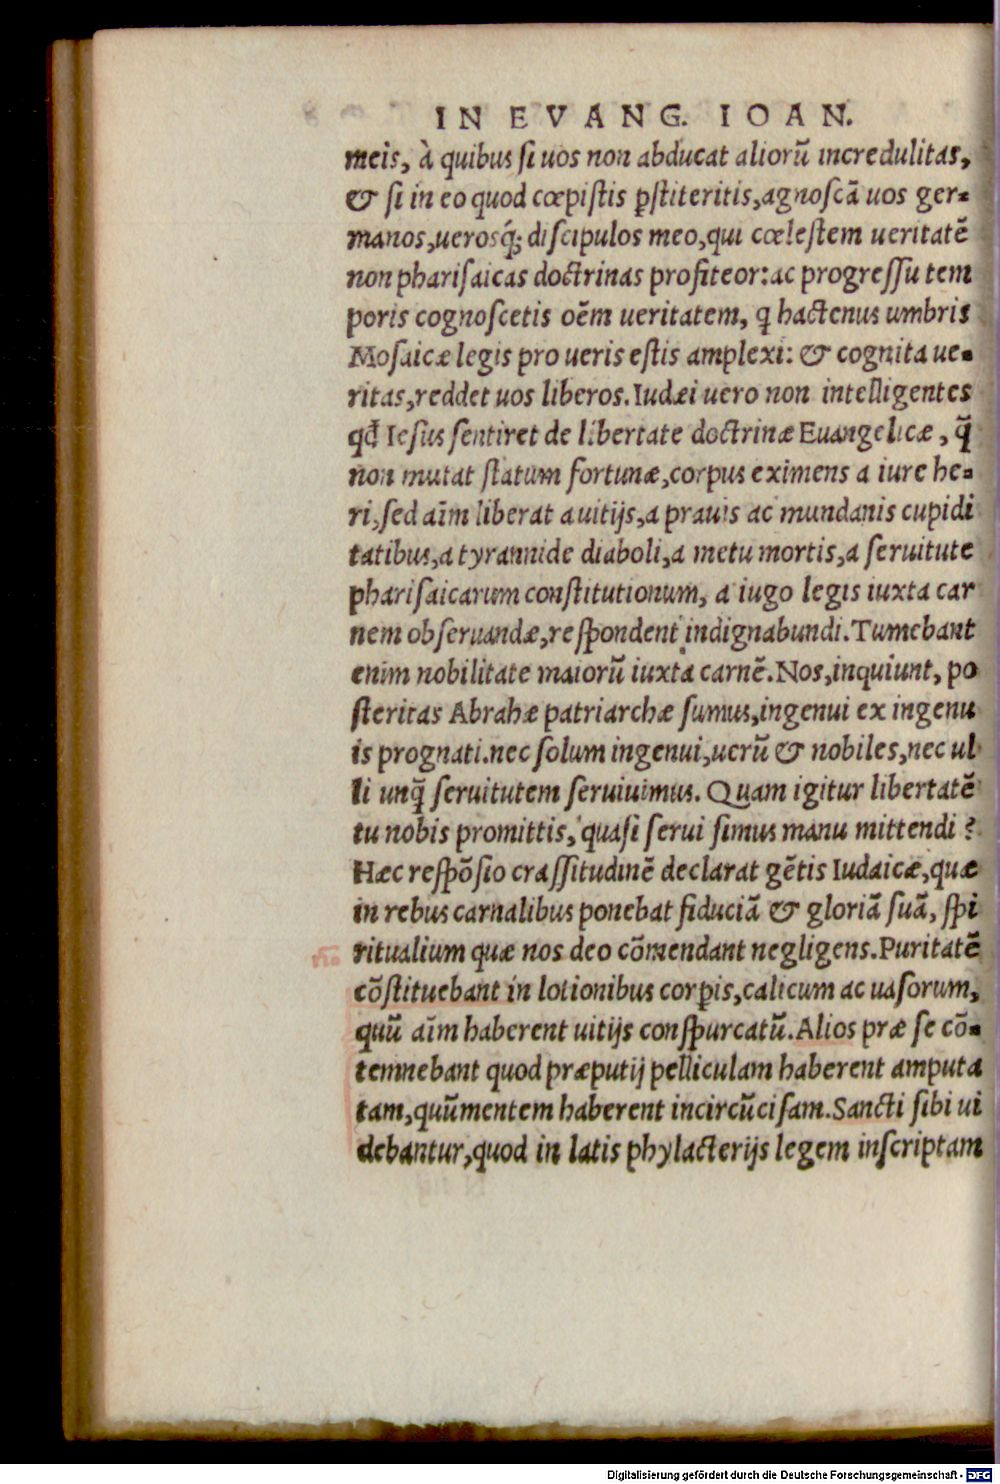 IN EVANG. IOAN.
meis, à quibus si uos non abducat aliorū incredulitas,
& si in eo quod cœpistis p̱stiteritis, agnoscā uos ger-
manos, uerosq́; discipulos meo, qui cœlestem ueritatē
non pharisaicas doctrinas profiteor: ac progressu tem
poris cognoscetis oēm ueritatem, q hactenus umbris
Mosaicæ legis pro ueris estis amplexi: & cognita ue-
ritas, reddet uos liberos. Iudæi uero non intelligentes
qđ Iesus sentiret de libertate doctrinæ Euangelicæ, q̃
non mutat statum fortunæ, corpus eximens a iure he-
ri, sed aīm liberat a uitijs, a prauis ac mundanis cupidi
tatibus, a tyrannide diaboli, a metu mortis, a seruitute
pharisaicarum constitutionum, a iugo legis iuxta car
nem obseruandæ, respondent indignabundi. Tumebant
enim nobilitate maiorū iuxta carnē. Nos, inquiunt, po
steritas Abrahæ patriarchæ sumus, ingenui ex ingenu
is prognati. nec solum ingenui, uerū & nobiles, nec ul
li unq̃ seruitutem seruiuimus. Quam igitur libertatē
tu nobis promittis, quasi serui simus manu mittendi?
Hæc respōsio crassitudinē declarat gētis Iudaicæ, quæ
in rebus carnalibus ponebat fiduciā & gloriā suā, spi
ritualium quæ nos deo cōmendant negligens. Puritatē
cōstituebant in lotionibus corp̱is, calicum ac uasorum,
quū aīm haberent uitijs conspurcatū. Alios præ se cō-
temnebant quod præputij pelliculam haberent amputa
tam, quū mentem haberent incircūcisam. Sancti sibi ui
debantur, quod in latis phylacterijs legem inscriptam
Digitalisierung gefördert durch die Deutsche Forschungsgemeinschaft - DFG